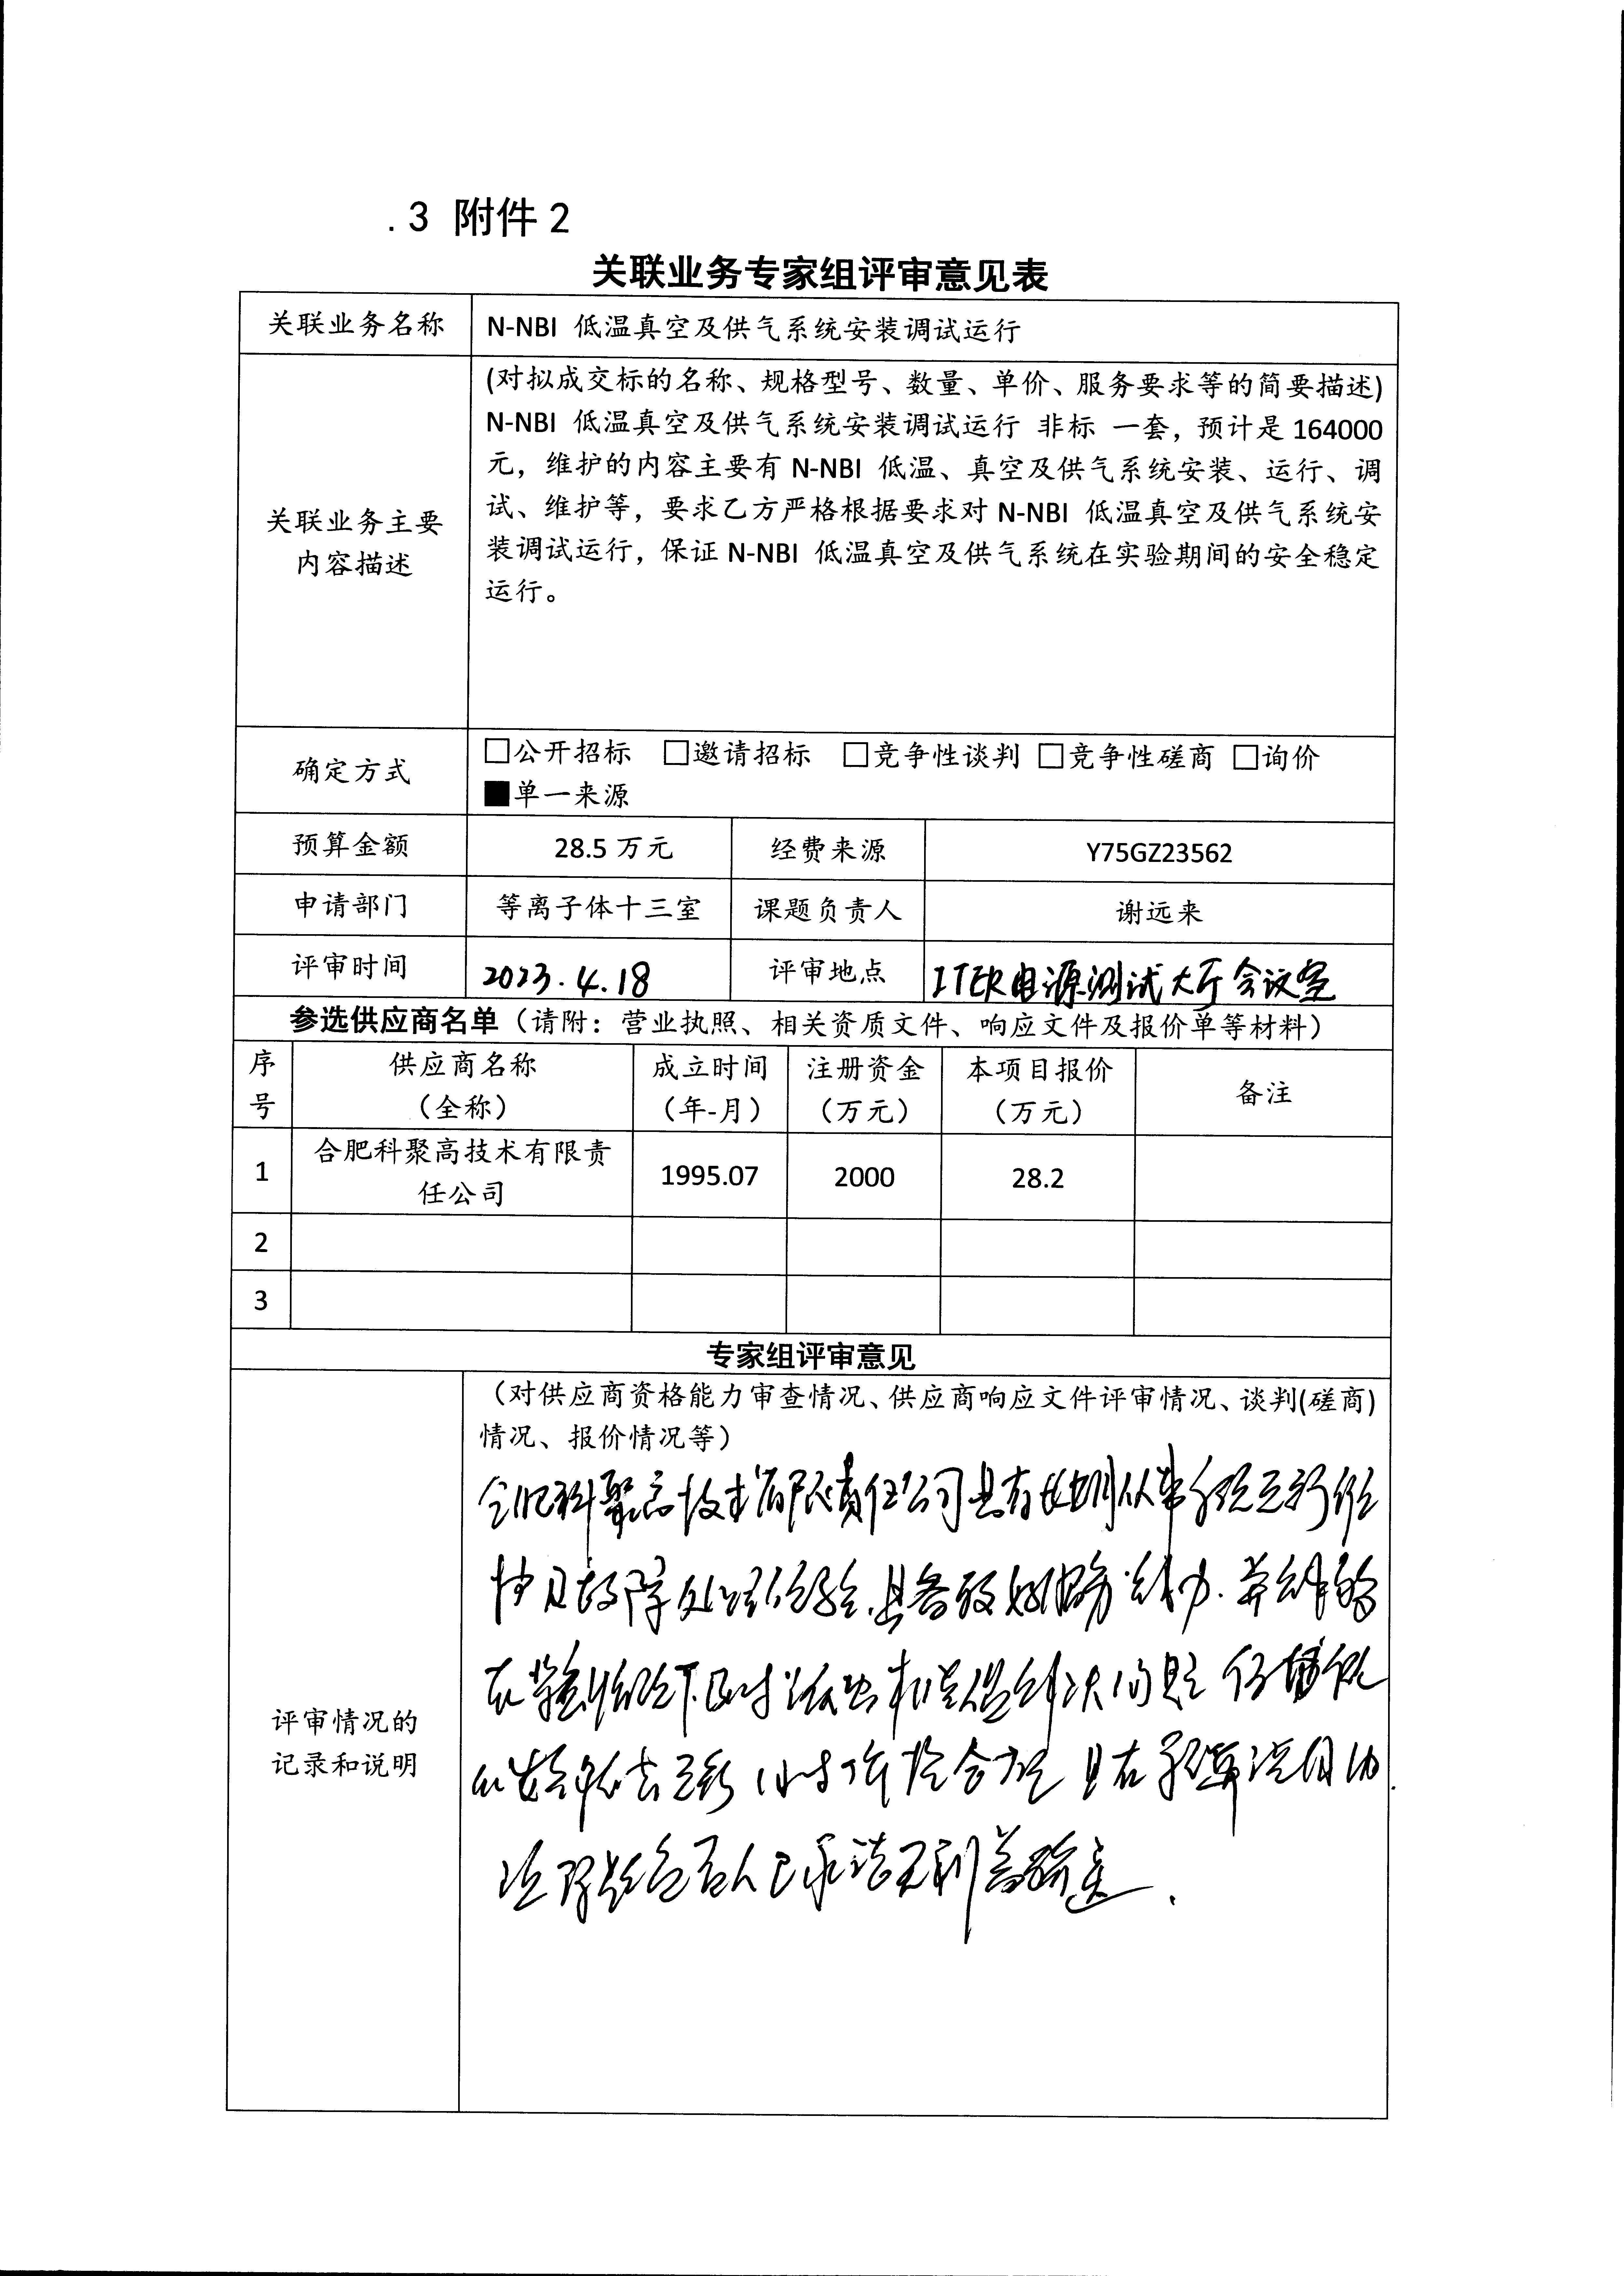 .3 附件2
关联业务专家组评审意见表
关联业务名称
N-NBI 低温真空及供气系统安装调试运行
关联业务主要
内容描述
(对拟成交标的名称、规格型号、数量、单价、服务要求等的简要描述)
N-NBI 低温真空及供气系统安装调试运行 非标 一套，预计是 164000
元，维护的内容主要有 N-NBI 低温、真空及供气系统安装、运行、调
试、维护等，要求乙方严格根据要求对 N-NBI 低温真空及供气系统安
装调试运行，保证 N-NBI 低温真空及供气系统在实验期间的安全稳定
运行。
确定方式
□公开招标 □邀请招标 □竞争性谈判 □竞争性磋商 □询价
■单一来源
预算金额 28.5 万元 经费来源 Y75GZ23562
申请部门 等离子体十三室 课题负责人 谢远来
评审时间 2023.4.18 评审地点 ITER电源测试大厅会议室
参选供应商名单（请附：营业执照、相关资质文件、响应文件及报价单等材料）
序
号
供应商名称
（全称）
成立时间
（年-月）
注册资金
（万元）
本项目报价
（万元）
备注
1
合肥科聚高技术有限责
任公司
1995.07 2000 28.2
2
3
专家组评审意见
评审情况的
记录和说明
（对供应商资格能力审查情况、供应商响应文件评审情况、谈判(磋商)
情况、报价情况等）
合肥科聚高技术有限责任公司具有长期从事系统运行维
护及故障处理经验,具备较好服务能力.并能够
在紧急情况下及时
合理 且在预算范围内.
负责人已承诺无利益输送.